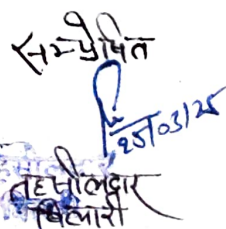 सम्प्रेषित
25/03/25
तहसीलदार
बिलारी